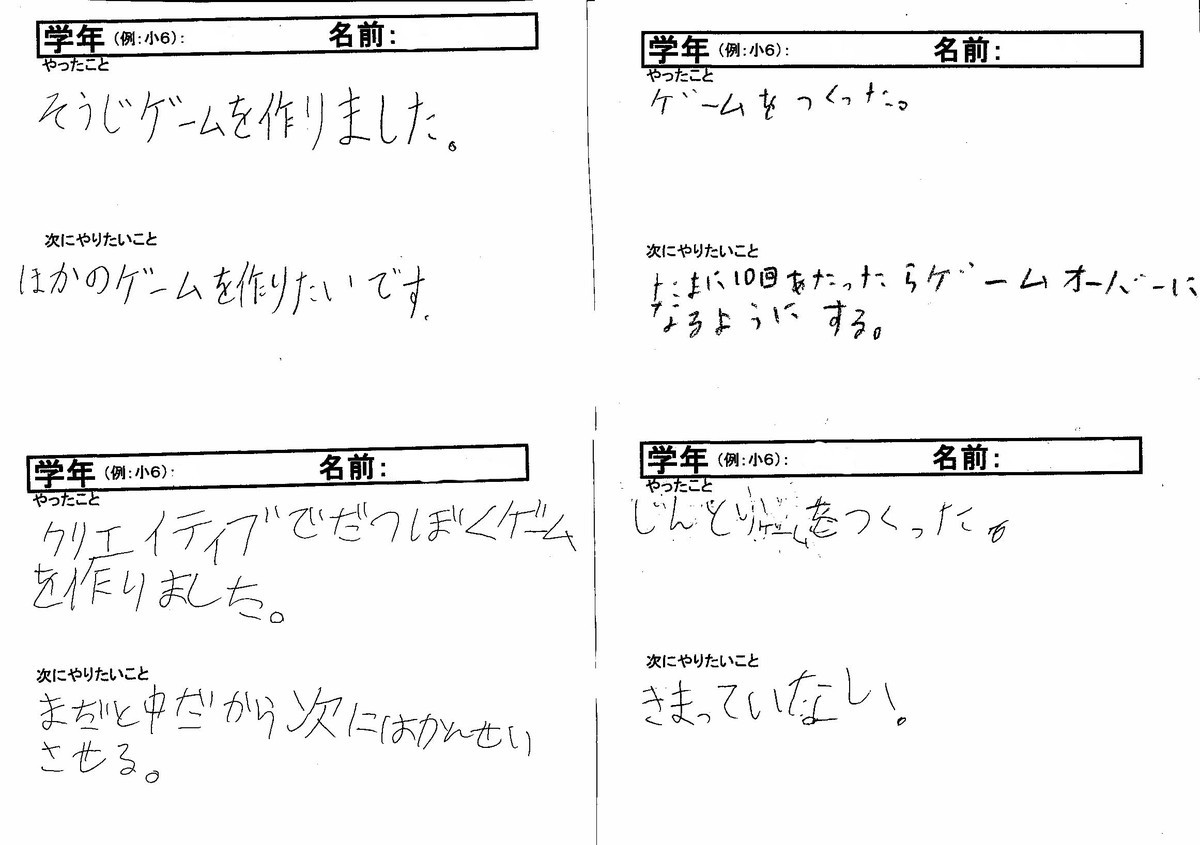 学年(例:小6): 名前:
やったこと
そうじゲームを作りました。
次にやりたいこと
ほかのゲームを作りたいです.
学年(例:小6): 名前:
やったこと
ゲームをつくった。
次にやりたいこと
たまに10回あたったらゲームオーバーに
なるようにする。
学年(例:小6): 名前:
やったこと
クリエイティブでだつぼくゲーム
を作りました。
次にやりたいこと
まだと中だから次にはかんせい
させる。
学年(例:小6): 名前:
やったこと
じんとりゲームをつくった。
次にやりたいこと
きまっていなしい。